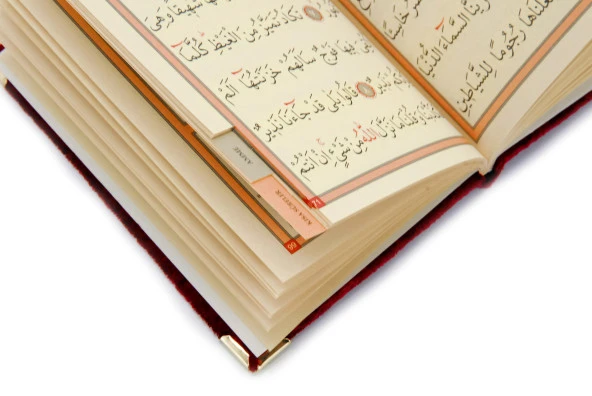 زَيَّنَّا السَّمَاءَ الدُّنْيَا
رُجُومًا لِلشَّيَاطِينِ
شَهِيقًا وَهِىَ
تَكَادُ تَمَيَّزُ مِنَ الْغَيْظِ كُلَّمَا
فِيهَا فَوْجٌ سَاَلَهُمْ خَزَنَتُهَا اَلَمْ
قَالُوا بَلٰى قَدْ جَاءَنَا نَذِيرٌ
وَقُلْنَا مَا نَزَّلَ اللّٰهُ مِنْ شَىْءٍ اِنْ اَنْتُمْ
71
AMME
KISA SURELER